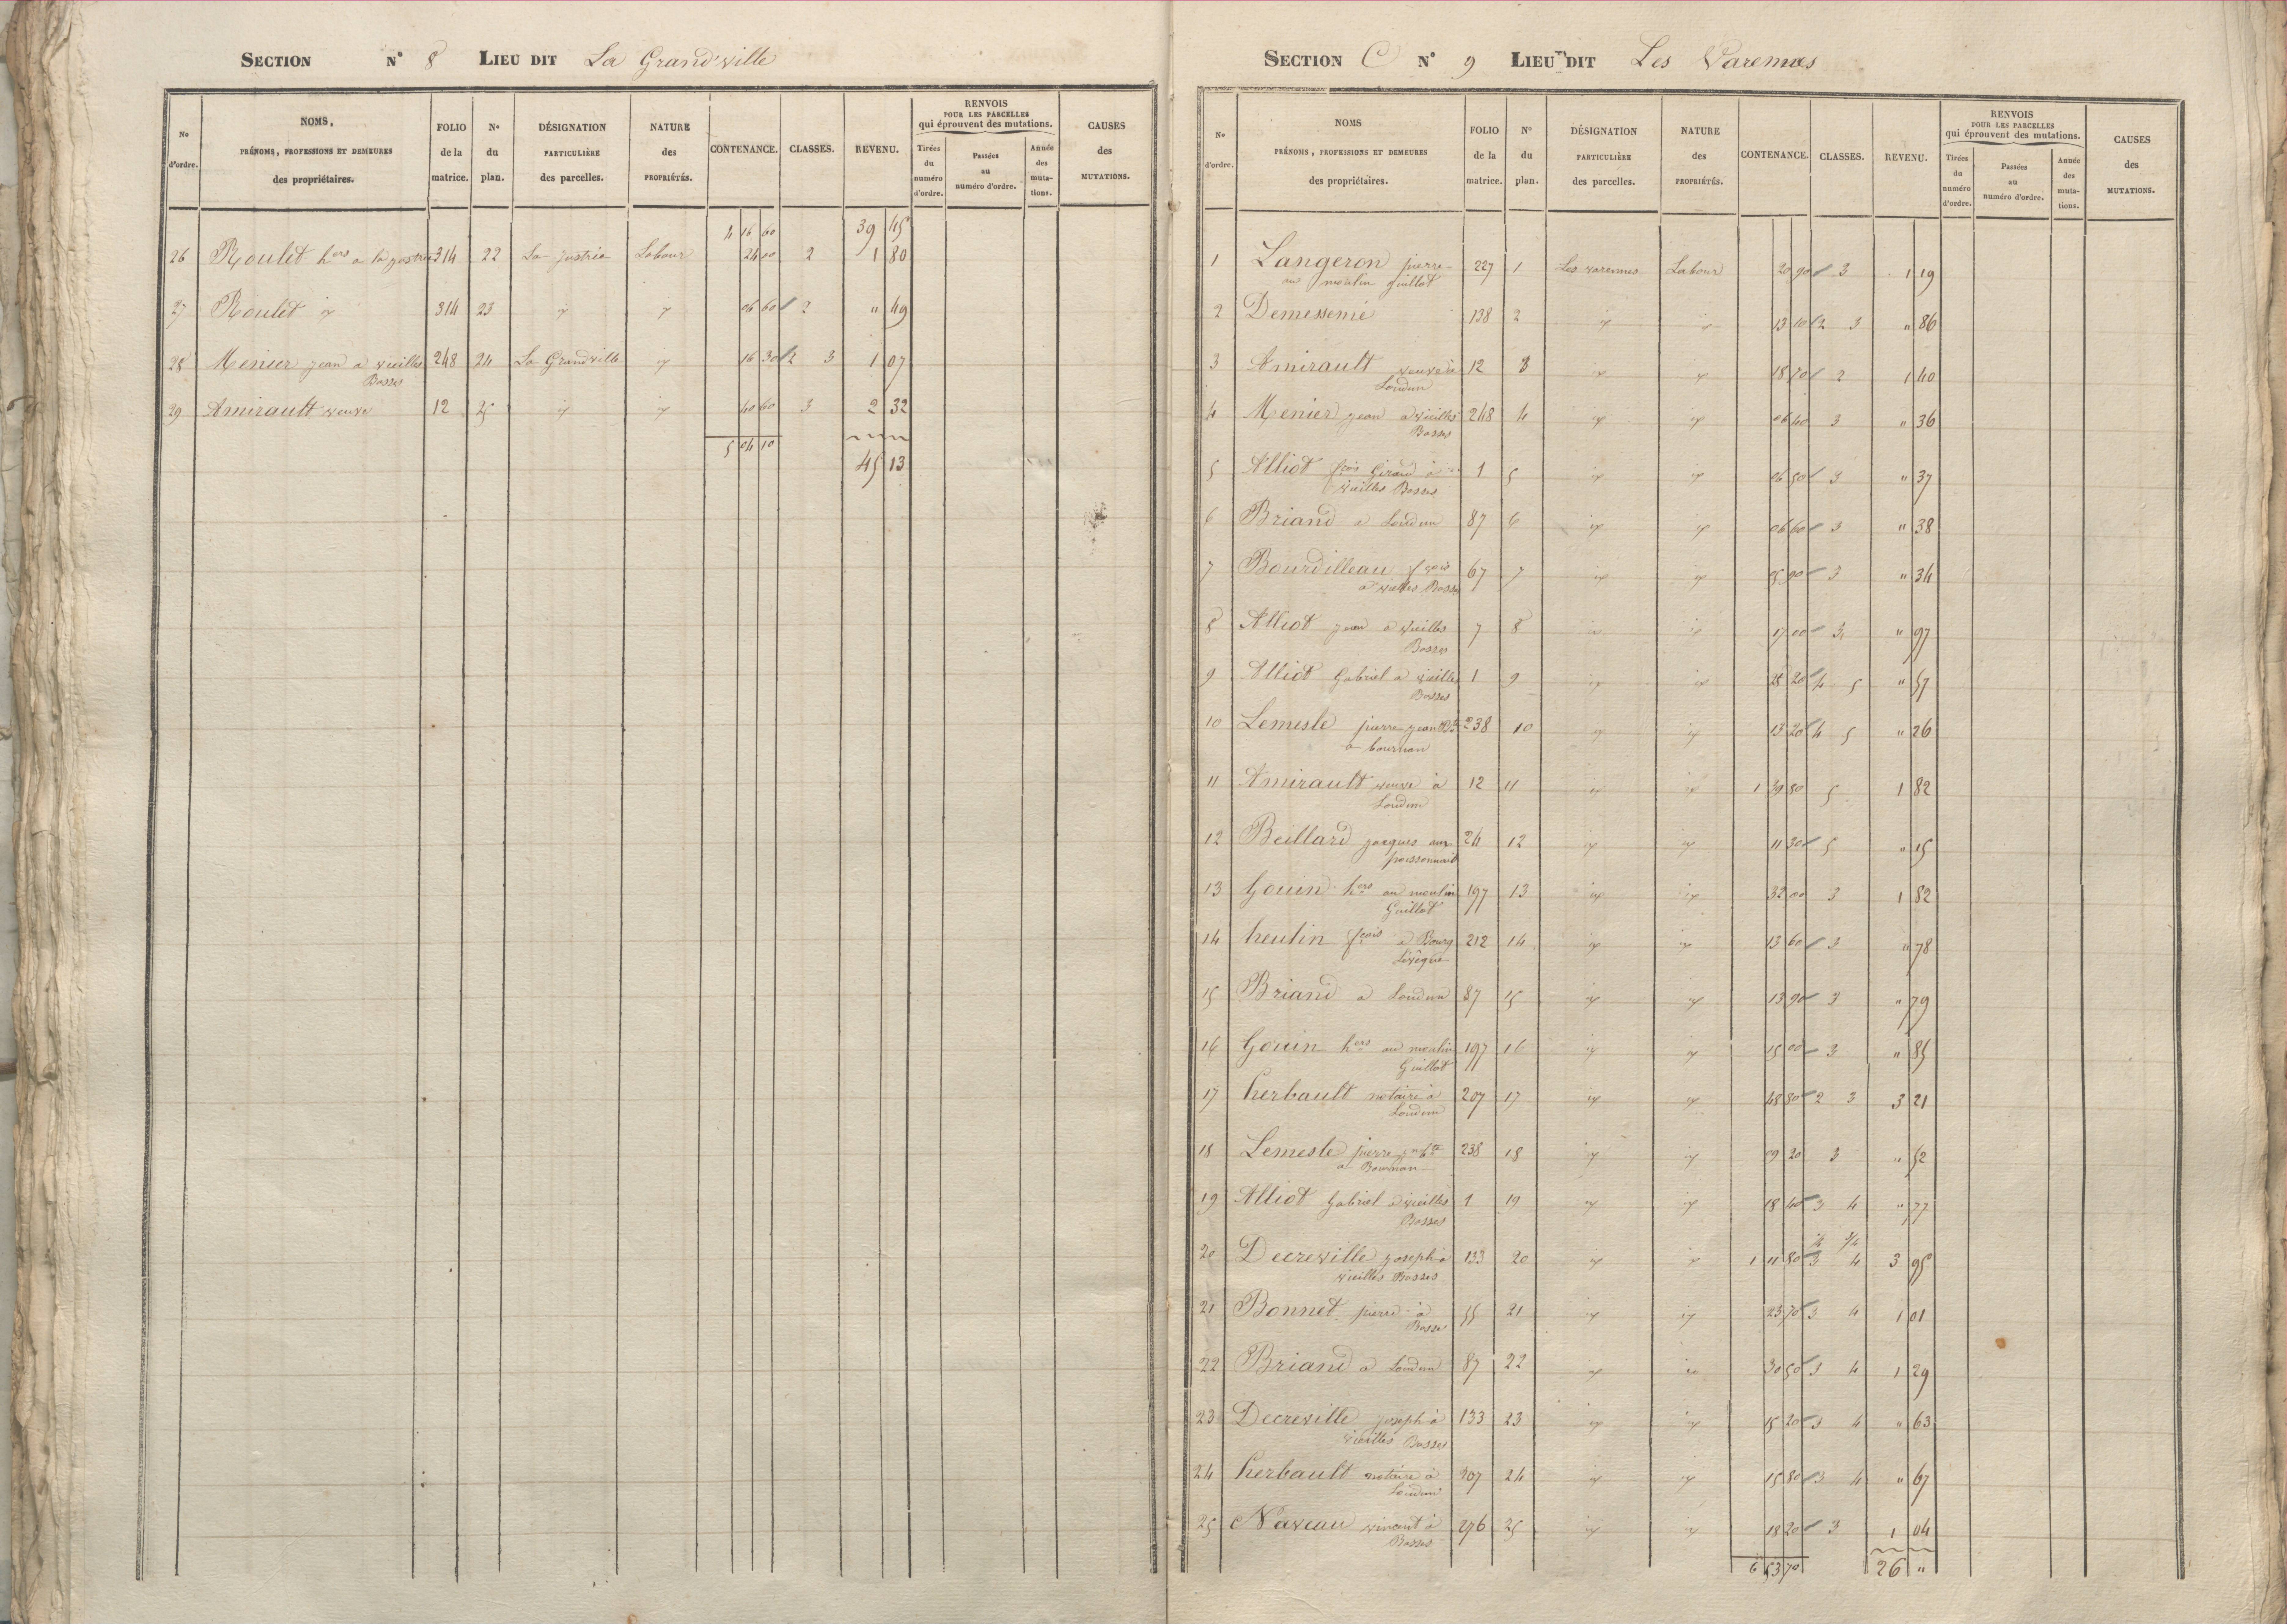 SECTION N° 8 LIEU DIT La Grand'ville
No d'ordre. NOMS, PRÉNOMS, PROFESSIONS ET DEMEURES des propriétaires. FOLIO de la matrice. N° du plan. DÉSIGNATION PARTICULIÈRE des parcelles. NATURE des PROPRIÉTÉS. CONTENANCE. CLASSES. REVENU. RENVOIS POUR LES PARCELLES qui éprouvent des mutations. Tirées du numéro d'ordre. Passées au numéro d'ordre. Année des mutations. CAUSES des MUTATIONS.
4 16 60 39 45
26 Roulet hers a la justrie 314 22 La justrie Labour 24 00 2 1 80
27 Roulet id 314 23 id id 06 60 2 " 49
28 Menier jean a vieilles 248 24 La Grandville id 16 30 2 3 1 07
Basses
29 Amirault veuve 12 25 id id 40 60 3 2 32
5 04 10
45 13
SECTION C N° 9 LIEU DIT Les Varennes
No d'ordre. NOMS PRÉNOMS, PROFESSIONS ET DEMEURES des propriétaires. FOLIO de la matrice. N° du plan. DÉSIGNATION PARTICULIÈRE des parcelles. NATURE des PROPRIÉTÉS. CONTENANCE. CLASSES. REVENU. RENVOIS POUR LES PARCELLES qui éprouvent des mutations. Tirées du numéro d'ordre. Passées au numéro d'ordre. Année des mutations. CAUSES des MUTATIONS.
1 Langeron pierre 227 1 Les varennes Labour 20 90 3 1 19
au moulin guillot
2 Demessemé 138 2 id id 13 10 2 3 " 86
3 Amirault veuve à 12 3 id id 18 70 2 1 40
Loudun
4 Menier jean a vieilles 248 4 id id 06 40 3 " 36
Basses
5 Alliot fcois Girard à 1 5 id id 06 50 3 " 37
vieilles Basses
6 Briand a Loudun 87 6 id id 06 60 3 " 38
7 Bourdilleau fcois 67 7 id id 05 90 3 " 34
a vieilles Basses
8 Alliot jean a vieilles 7 8 id id 17 00 3 " 97
Basses
9 Alliot Gabriel a vieilles 1 9 id id 28 20 4 5 " 57
Basses
10 Lemesle pierre jean Bte 238 10 id id 13 20 4 5 " 26
a bournan
11 Amirault veuve à 12 11 id id 1 39 80 5 1 82
Loudun
12 Beillard jacques aux 24 12 id id 11 30 5 " 15
13 Gouin hers au moulin 197 13 id id 32 00 3 1 82
Guillot
14 heulin fcois a Bourg 212 14 id id 13 60 3 " 78
Livêque
15 Briand a Loudun 87 15 id id 13 90 3 " 79
16 Gouin hers au moulin 197 16 id id 15 00 3 " 85
Guillot
17 herbault notaire à 207 17 id id 48 80 2 3 3 21
Loudun
18 Lemesle pierre jn bte 238 18 id id 09 20 3 " 52
a Bournan
19 Alliot Gabriel a vieilles 1 19 id id 18 40 3 4 " 77
Basses
1/4 3/4
20 Decreville joseph à 133 20 id id 1 11 80 3 4 3 95
vieilles Basses
21 Bonnet pierre à 55 21 id id 23 70 3 4 1 01
Basse
22 Briand a Loudun 87 22 id id 30 50 3 4 1 29
23 Decreville joseph à 133 23 id id 15 20 3 4 " 63
vieilles Basses
24 herbault notaire à 207 24 id id 15 80 3 4 " 67
Loudun
25 Naveau vincent à 276 25 id id 18 20 3 1 04
Basses
6 53 70 26 "